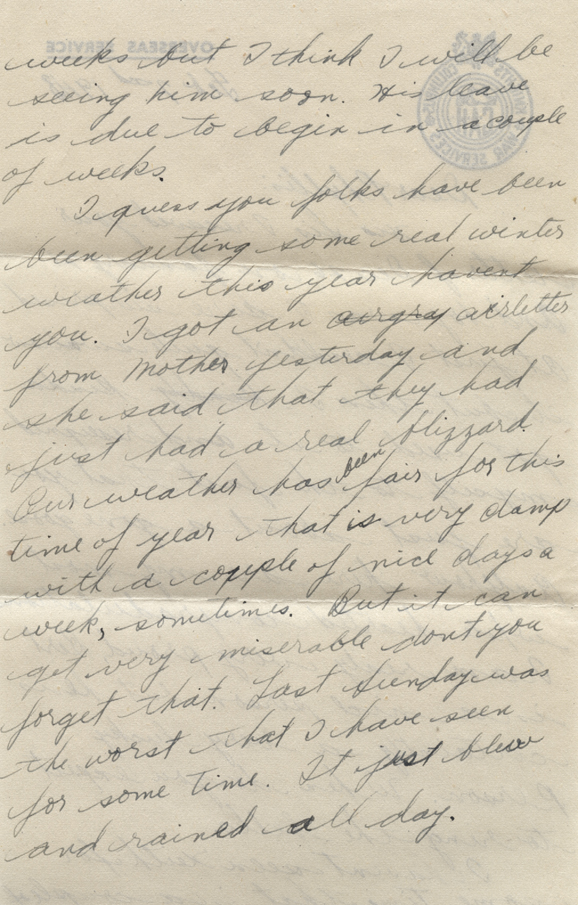 OVERSEAS SERVICE
weeks but I think I will be
seeing him soon. His leave
is due to begin in a couple
of weeks.
I guess you folks have been
been getting some real winter
weather this year havent
you. I got an airgray airletter
from Mother yesterday and
she said that they had
just had a real blizzard.
Our weather has been fair for this
time of year that is very damp
with a couple of nice days a
week, sometimes. But it can
get very miserable dont you
forget that. Last Sunday was
the worst that I have seen
for some time. It just blew
and rained all day.